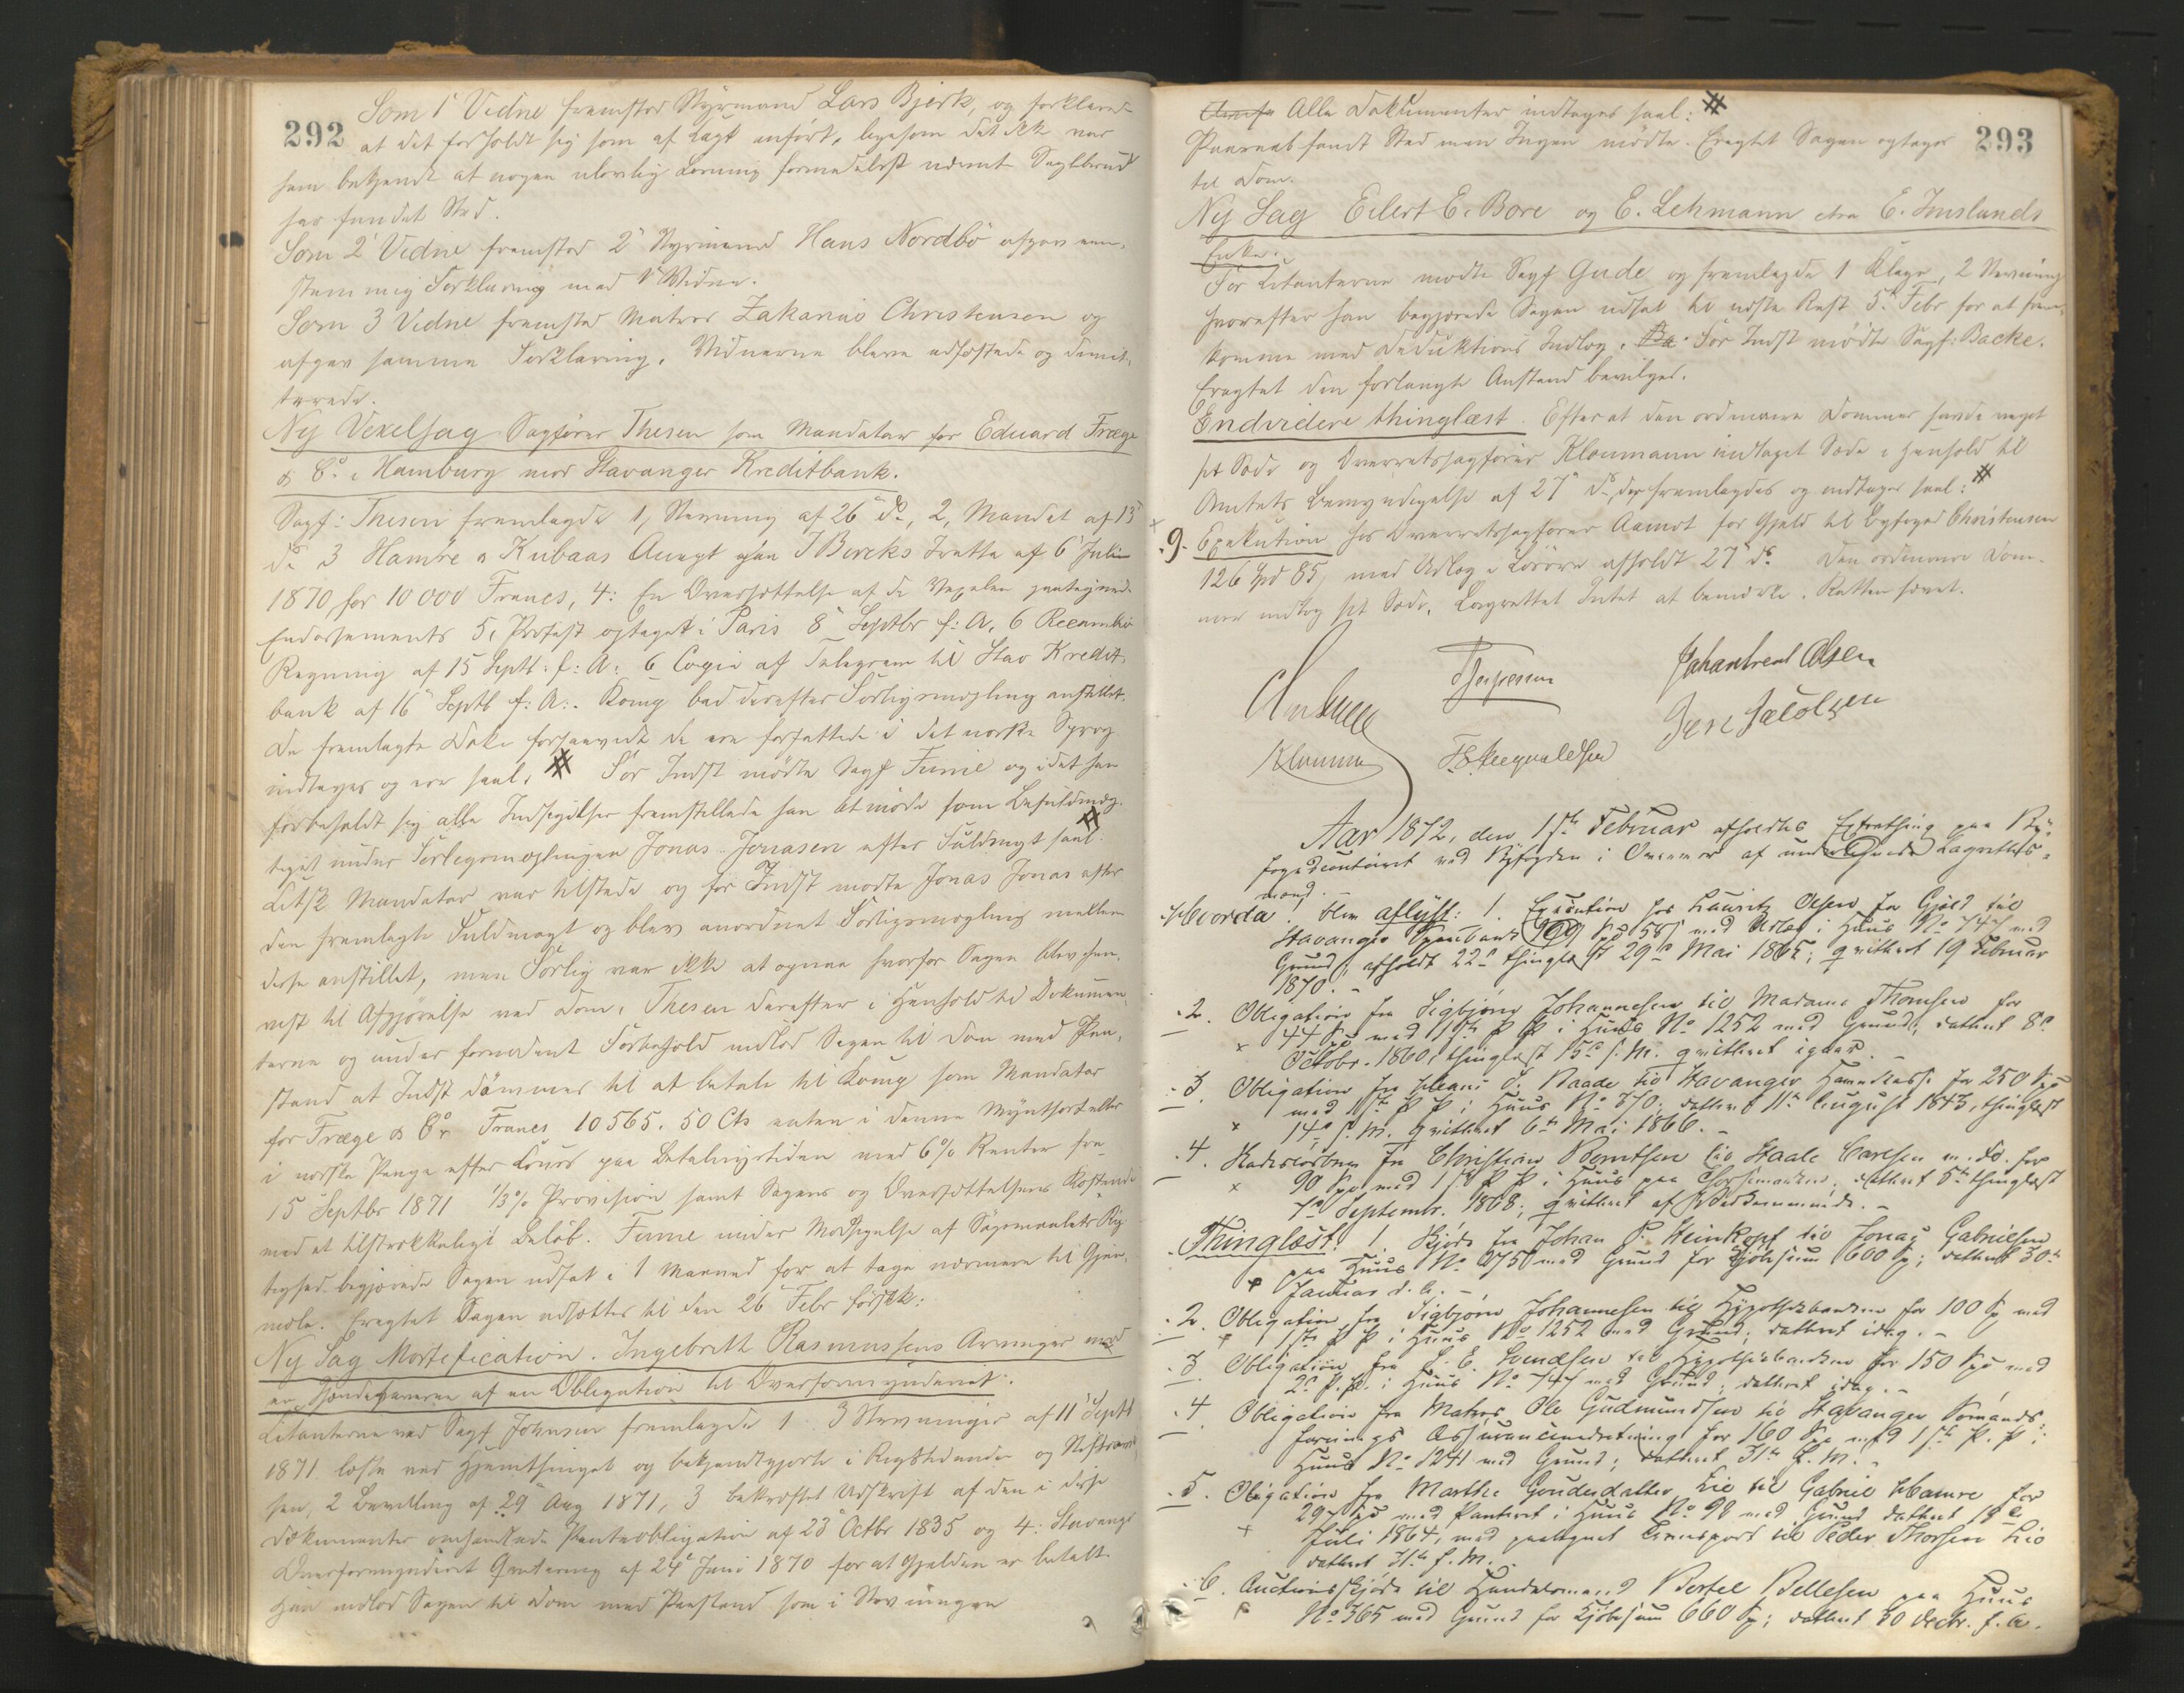 292
Som 1 Vidne fremstod Styrmand Lars Bjerk, og forklared
at det forholdt sig som af Capt anført, ligesom det ikke var
ham bekjendt at nogen ulovlig Losning formedelst nævnte
har fundet Sted.
Som 2 Vidne fremstod 2 Styrmand Hans Nordbö afgav enn,
stemmig Forklaring med 1 Vidne.
Som 3 Vidne fremstod Matros Zakarias Christensen og
afgav samme Forklaring. Vidnerne bleve edfæstede og dimit,
terede.
Ny Vexelsag Sagfører Thesen som Mandatar for Eduard Fræge
& Co i Hamburg mod Stavanger Kreditbank.
Sagf: Thesen fremlagde 1, Stevning af 26 ds, 2, Mandat af 13
ds 3 Hamre & Kubaas Accept paa J Bercks Tratte af 6 Juli
1870 for 10000 Francs, 4: En Oversættelse af de Vexelen paategnede
Endossements 5, Protest optaget i Paris 8 Septbr f: A, 6 Recambio
Regning af 15 Septb: f: A: 6 Copie af Telegram til Stav Kredit,
bank af 16 Septb f: A:. Komp bad derefter Forligsmægling anstillet.
De fremlagte Dok: forsaavidt de ere forfattede i det norske Sprog
indtages og ere saal: # For Indst mødte Sagf Fume og idet han
forbeholdt sig alle Indsigelser fremstillede han at møde som Befuldmæg.
tiget under Forligsmæglingen Jonas Jonasen efter Fuldmagt saal: #
Citst Mandatar var tilstede og for Indst mødte Jonas Jonas efter
den fremlagte Fuldmagt og blev anordnet Forligsmægling mellem
disse anstillet, men Forlig var ikke at opnaa hvorfor Sagen blev hen,
vist til Afgjørelse ved Dom. Thesen derefter i Henhold til Dokumen,
terne og under fornødent Forbehold indlod Sagen til Dom med Paa,
stand at Indst dömmes til at betale til Komp som Mandatar
for Fræge & Co Francs 10565. 50 Cts enten i denne Myntsort eller
i norske Penge efter Cours paa Betalingstiden med 6% Renter fra
15 Septbr 1871 1/3% Provision samt Sagens og Oversættelsens Kostende
med et tilstrækkeligt Beløb. Fume under Modsigelse af Søgsmaalets Rig
tighed begjærede Sagen udsat i 1 Maaned for at tage nærmere til Gjen,
mæle. Eragtet Sagen udsættes til den 26 Febr førstk:
Ny Sag Mortification. Ingebreth Rasmussens Arvinger mod
en Ihændehaverne af en Obligation til Overformynderiet.
Citanterne ved Sagf Johnsen fremlagde 1 3 Stevninger af 11 Septb
1871 læste ved Hjemthinget og bekjendtgjorte i Rigstidende og
2 Bevilling af 29 Aug 1871, 3 bekræftet Udskrift af den i disse
Dokumenter omhandlede Panteobligation af 23 Octbr 1835 og 4: Stavanger
Overformynderiets Qvittering af 24 Juni 1870 for at Gjelden er betalt
Han indlod Sagen til Dom med Paastand som i Stevningen
293
Alle Dokumenter indtages saal: #
Paaraab fandt Sted men Ingen mødte. Eragtet Sagen optages
til Dom.
Ny Sag Eilert E. Bore og E. Lehmann ctra E. Imslands
Enke.
For Citanterne mødte Sagf Gude og fremlagde 1 Klage, 2 Stevning
hvorefter han begjærede Sagen udsat til næste Ret 5 Febr for at frem,
komme med Deduktions Indlæg. For Indst mödte Sagf: Backe.
Eragtet den forlangte Anstand bevilges.
Endvidere thinglæst. Efter at den ordinære Dommer havde veget
sit Sæde og Overretssagfører Kloumann indtaget Sæde i Henhold til
Amtets Bemyndigelse af 27 ds, der fremlagdes og indtages saal: #
9. Exekution hos Overretssagfører Aamot for Gjeld til Byfoged Christensen
126 Spd 85, med Udlæg i Løsøre afholdt 27 ds. Den ordinære Dom-
mer indtog sit Sæde. Lagrettet Intet at bemærke. Retten hævet.
Johan Olsen
Jens Jacobsen
Aar 1872, den 1ste Februar afholdtes Extrathing paa By=
fogedcontoiret ved Byfogden i Overvær af undertegnede Lagrettes=
mænd.
Hvorda blev aflyst: 1. Execution hos Lauritz Olsen for Gjeld til
Stavanger Sparebank 199 Spd 58 med Udlæg i Huus No 747 med
Grund; afholdt 22de thinglæst 29de Mai 1865; qvitteret 19 Februar
1870.
2. Obligation fra Sigbjørn Johannesen til Madame Thomsen for
44 Spd med 1ste P. P. i Huus No 1252 med Grund; datteret 8de
Octobr. 1860, thinglæst 15de s. M. qvitteret igaar.
3. Obligation fra Hans J. Raade til Stavanger Havnekasse for 250 Spd
med 1ste P. P. i Huus No 370; datteret 11te August 1843, thinglæst
14de s. M. qvitteret 6te Mai 1866.
4. Kadeslosbrev fra Christian Berntsen til Staale Carlsen m. fl. for
90 Spd med 1ste P. P. i Huus paa; datteret 5te thinglæst
7de Septembr. 1868; qvitteret af Vedkommende.
Thinglæst: 1. Skjøde fra Johan P. Steinkopf til Jonas Gabrielsen
paa Huus No 1175 med Grund for Kjøbesum 600 Sp; datteret 30te
Januar d. A.
2. Obligation fra Sigbjørn Johannesen til Hypothekbanken for 100 Sp med
1ste P. P. i Huus No 1252 med Grund; datteret idag.
3. Obligation fra L. E. Svendsen til Hypothekbanken for 150 Spd med
2de P. P. i Huus No 747 med Grund; datteret idag.
4. Obligation fra Matros Ole Gudmundsen til Stavanger Sømands=
forenings Assuranceindretning for 160 Spd med 1ste P. P. i
Huus No 1241 med Grund; datteret 31te f. M.
5. Obligation fra Marthe Goudesdatter Lie til Gabriel Hamre for
297 Spd med Panteret i Huus No 98 med Grund datteret 18de
Juli 1864, med paategnet Transport til Peder Thorsen Lie
datteret 31te f. M.
6. Auctionsskjøde til Handelsmand Bertel Bellesen paa Huus
No 365 med Grund for Kjøbesum 660 Sp; datteret 30 Decbr. f. A.